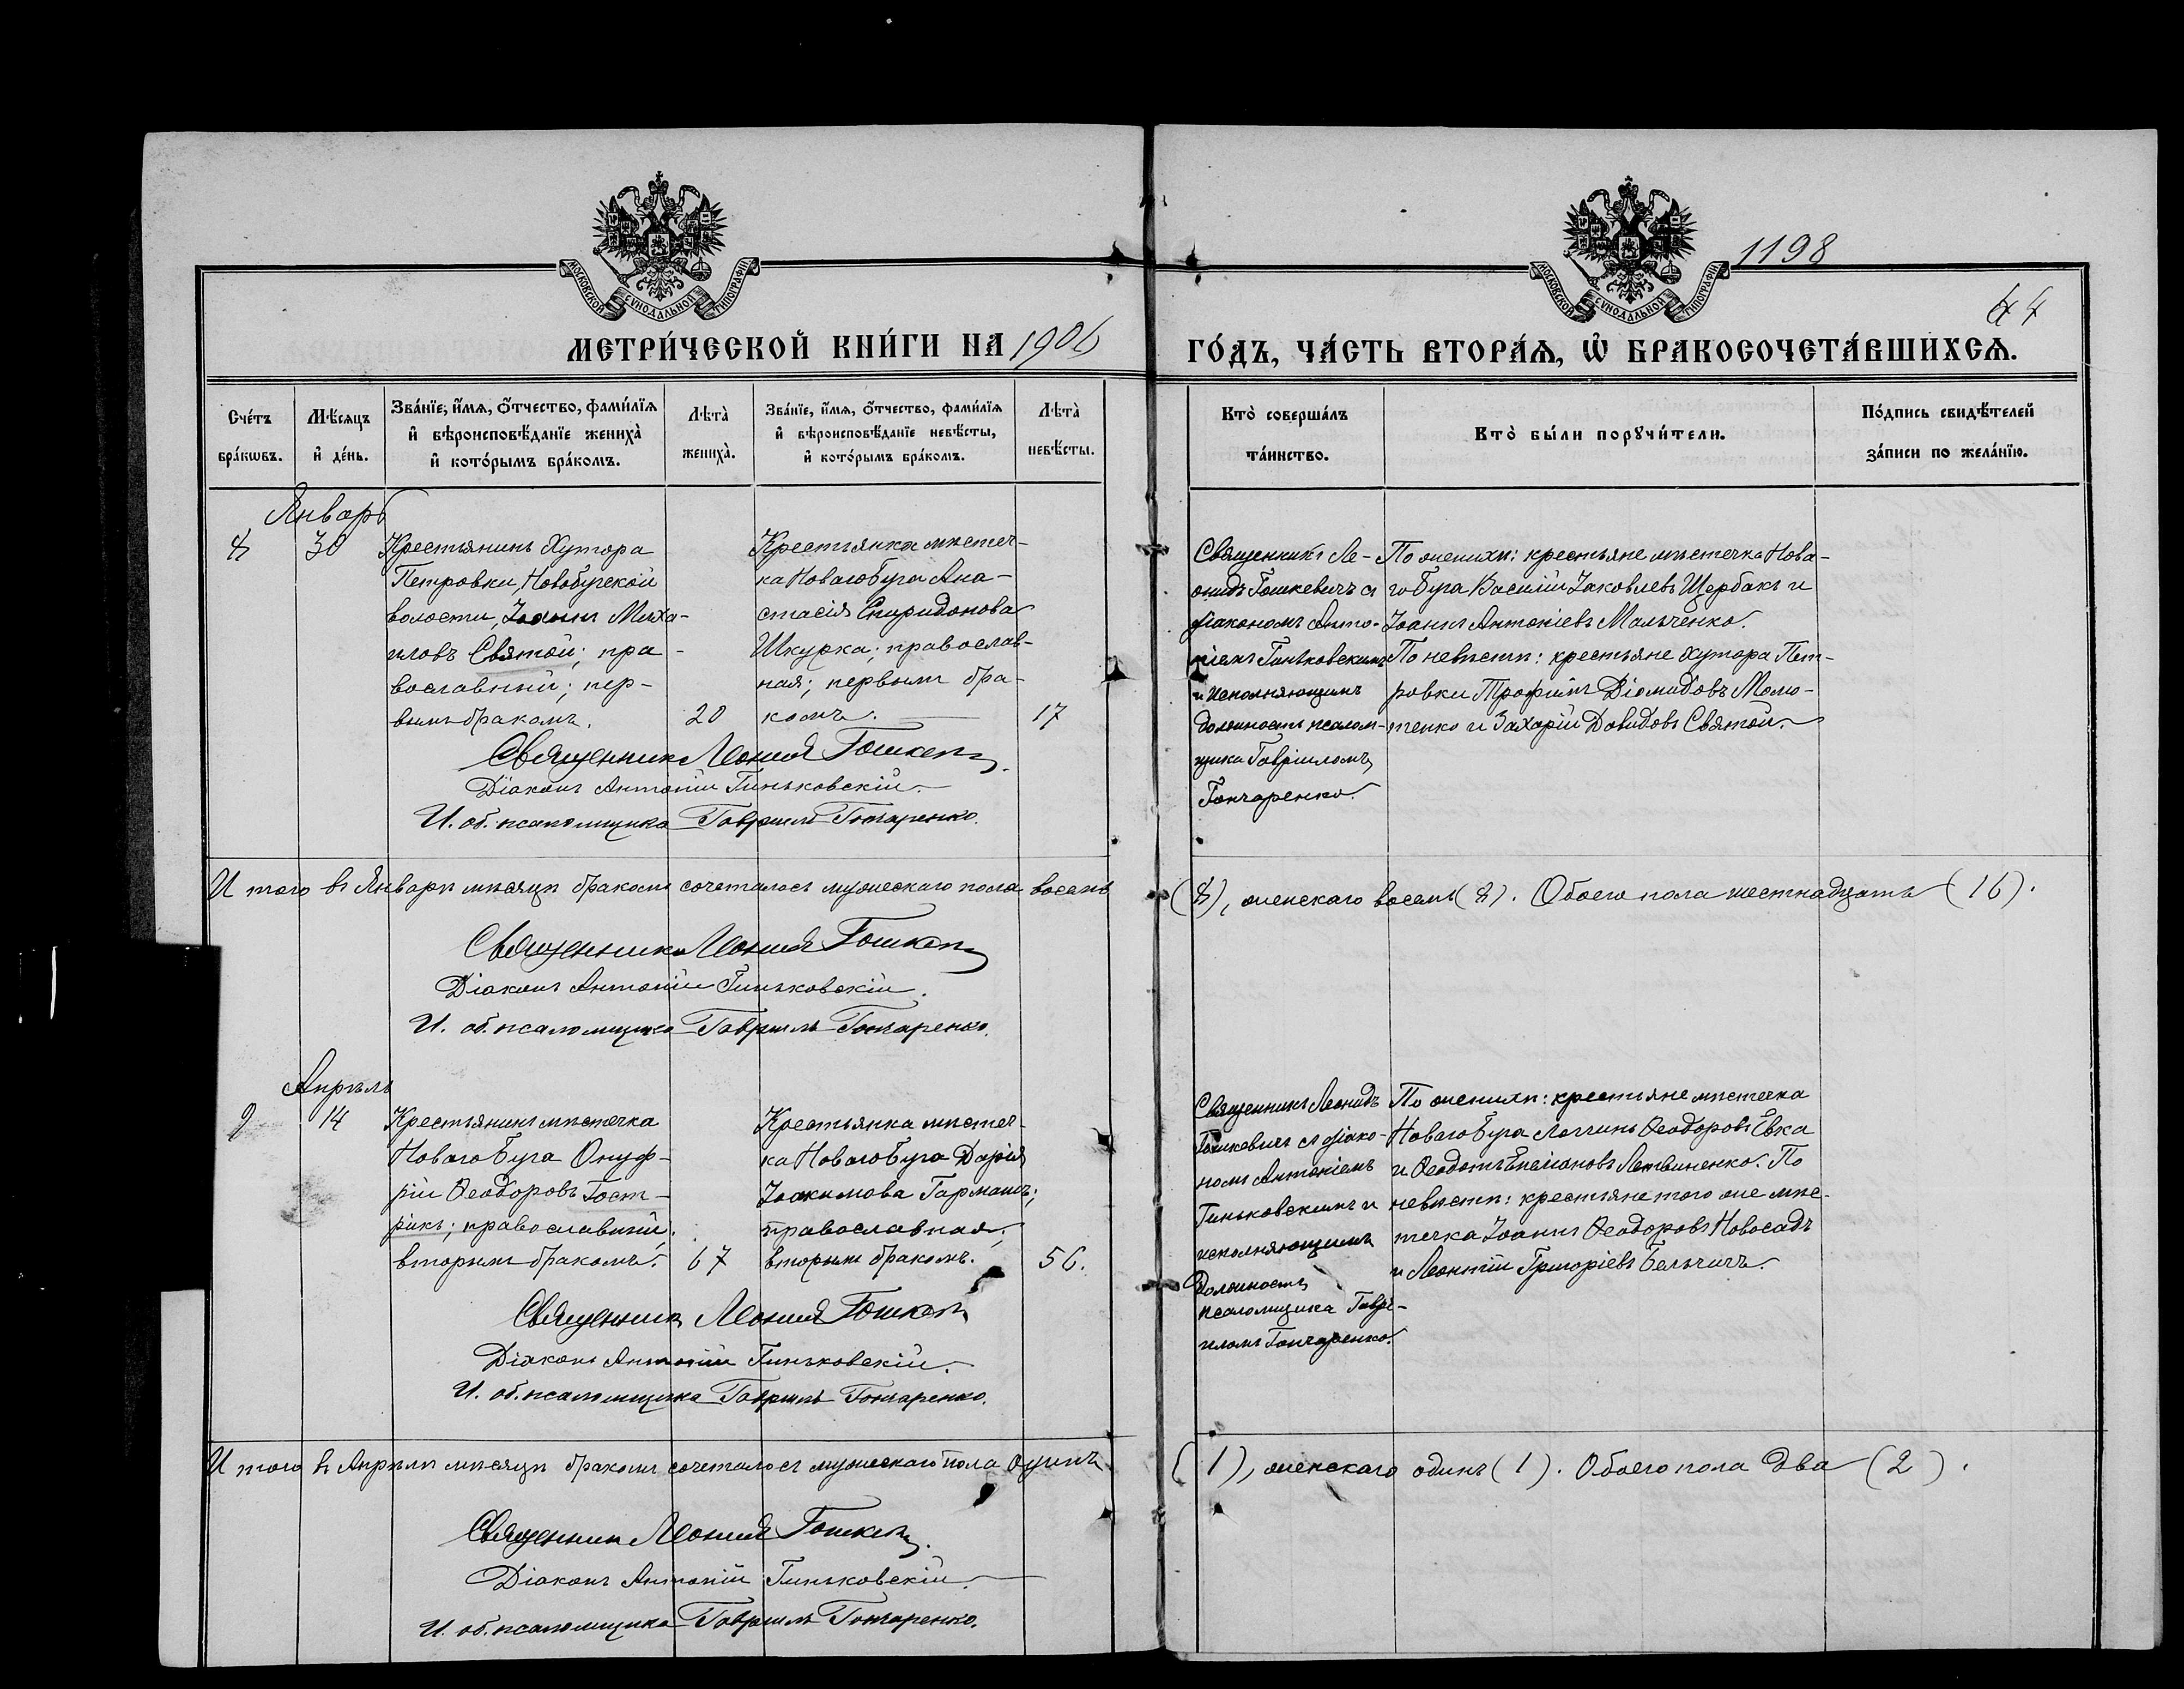 МОСКОВСКОЙ СѴНОДАЛЬНОЙ ТИПОГРАФІИ
МОСКОВСКОЙ СѴНОДАЛЬНОЙ ТИПОГРАФІИ
1198
44
МЕТРИ́ЧЕСКОЙ КНИ́ГИ НА 1906
ГО́ДЪ, ЧА́СТЬ ВТОРА́Ѧ, Ѡ҆ БРАКОСОЧЕТА́ВШИХСѦ.
Сче́тъ бра́кѡвъ.
Мѣ́сяцъ и҆ де́нь.
Зва́нїе, и҆́мѧ, ѻ҆́тчество, фами́лїѧ и҆ вѣроисповѣ́данїе жениха̀ и҆ кото́рымъ бра́комъ.
Лѣта̀ жениха̀.
Зва́нїе, и҆́мѧ, ѻ҆́тчество, фами́лїѧ и҆ вѣроисповѣ́данїе невѣ́сты, и҆ кото́рымъ бра́комъ.
Лѣта̀ невѣ́сты.
Кто̀ соверша́лъ та́инство.
Кто̀ бы́ли порꙋчи́тели.
По́дпись свидѣ́телей за́писи по жела́нїю.
Январь
8
30
Крестьянинъ Хутора
Петровки, Новобугской
волости, Іоаннъ Миха-
иловъ Святой; пра-
вославный; пер-
вымъ бракомъ.
20
Крестьянка мѣстеч-
ка Новаго Буга Ана-
стасія Спиридонова
Шкурка; православ-
ная; первымъ бра-
комъ.
17
Священникъ Ле-
онидъ Гошкевичъ съ
діакономъ Анто-
ніемъ Гиньковскимъ
и исполняющимъ
должность псалом-
щика Гавріиломъ
Гончаренко.
По женихѣ: крестьяне мѣстечка Нова-
го Буга Василій Іаковлевъ Щербакъ и
Іоаннъ Антоніевъ Мальченко.
По невѣстѣ: крестьяне Хутора Пет-
ровки Трофимъ Діомидовъ Момо-
тенко и Захарій Давидовъ Святой.
Священникъ Леонид Гошкевич.
Діаконъ Антоній Гиньковскій.
И. об. псаломщика Гавріилъ Гончаренко.
И того въ Январѣ мѣсяцѣ бракомъ сочеталось мужескаго пола восемь
(8), женскаго восемь (8). Обоего пола шестнадцать (16).
Священникъ Леонид Гошкевич
Діаконъ Антоній Гиньковскій.
И. об. псаломщика Гавріилъ Гончаренко.
Апрѣль
9
14
Крестьянинъ мѣстечка
Новаго Буга Онуф-
рій Ѳеодоровъ Гост-
рикъ; православный;
вторымъ бракомъ.
67
Крестьянка мѣстеч-
ка Новаго Буга Дарія
Іоакимова Гармашъ;
православная;
вторымъ бракомъ.
56.
Священникъ Леонидъ
Гошкевичъ съ діако-
номъ Антоніемъ
Гиньковскимъ и
исполняющимъ
должность
псаломщика Гаврі-
иломъ Гончаренко.
По женихѣ: крестьяне мѣстечка
Новаго Буга Логгинъ Ѳеодоровъ Евка
и Ѳеодотъ Литвиненко. По
невѣстѣ: крестьяне того же мѣс-
течка Іоаннъ Ѳеодоровъ Новосадъ
и Леонтій Григоріевъ Бельчичъ.
Священникъ Леонид Гошкевич
Діаконъ Антоній Гиньковскій.
И. об. псаломщика Гавріилъ Гончаренко.
И того въ Апрѣлѣ мѣсяцѣ бракомъ сочеталось мужескаго пола одинъ
(1), женскаго одинъ (1). Обоего пола два (2).
Священникъ Леонид Гошкевич.
Діаконъ Антоній Гиньковскій.
И. об. псаломщика Гавріилъ Гончаренко.